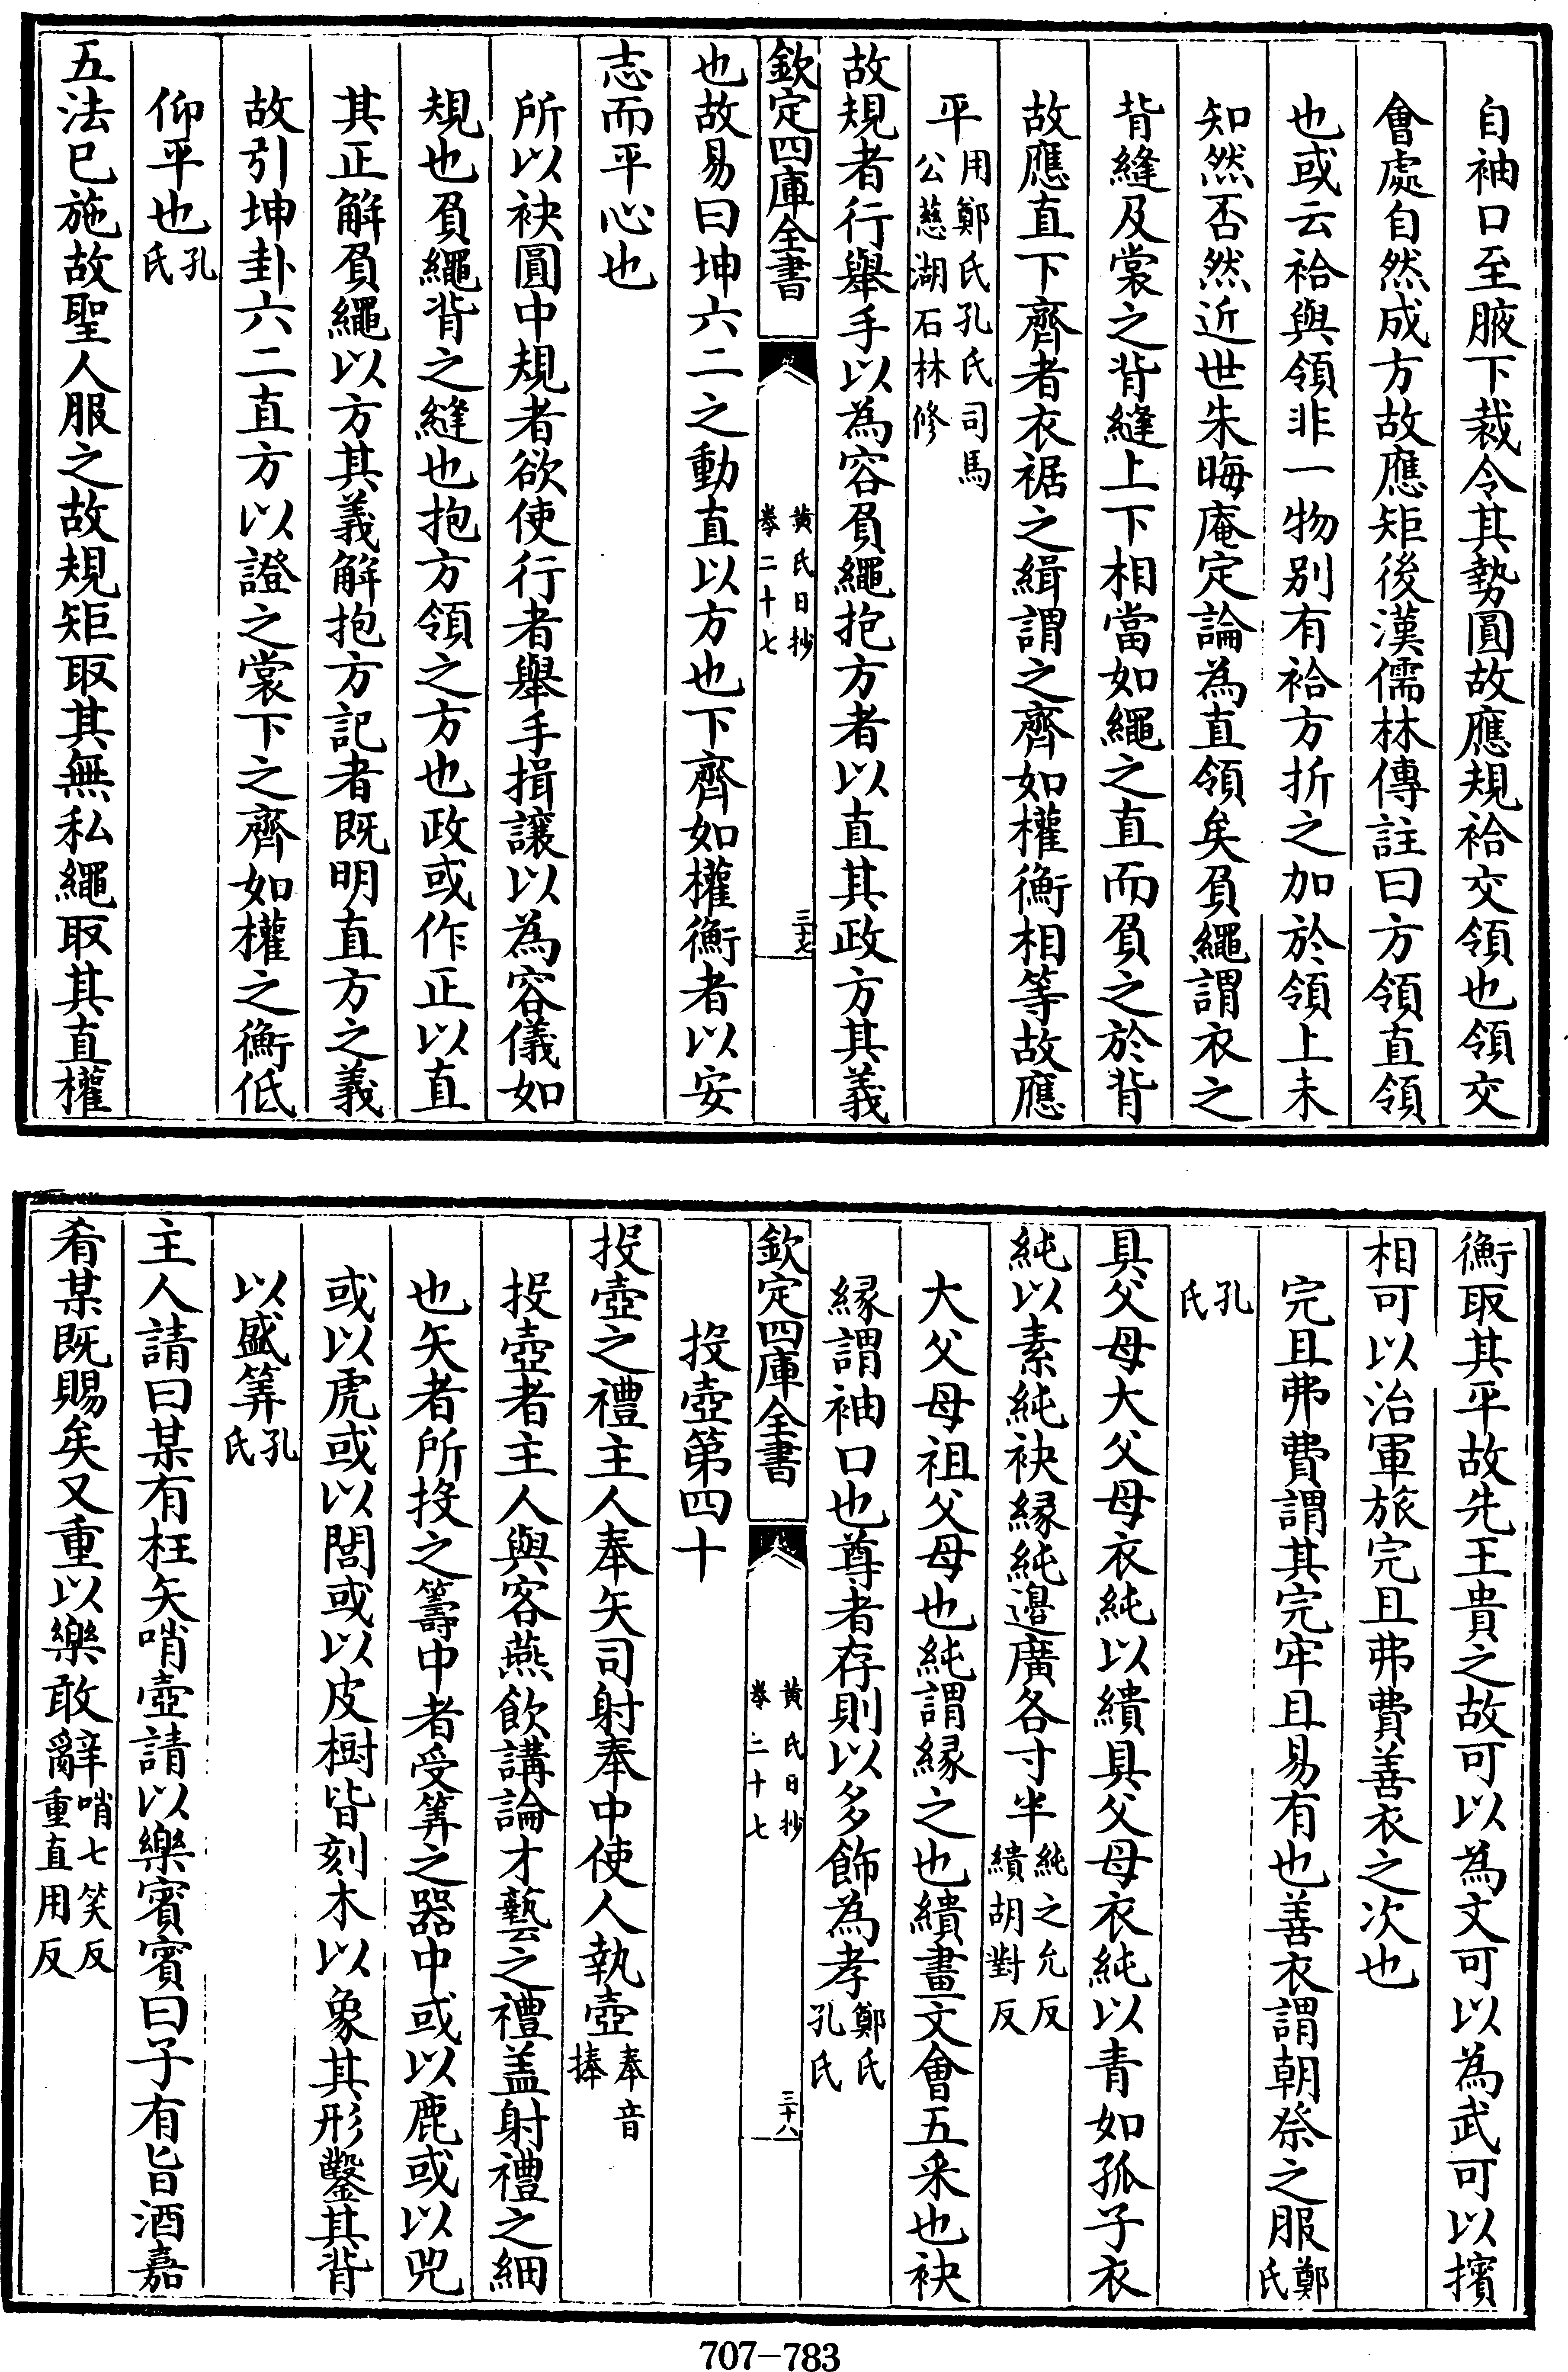 自袖口至腋下裁令其勢圓故應規袷交領也領交
會處自然成方故應矩後漢儒林傳註曰方領直領
也或云袷與領非一物别有袷方折之加於領上未
知然否然近世朱晦庵定論為直領矣負繩謂衣之
背縫及裳之背縫上下相當如繩之直而負之於背
故應直下齊者衣裾之緝謂之齊如權衡相等故應
平用鄭氏孔氏司馬
公慈湖石林修
故規者行舉手以為容負繩抱方者以直其政方其義
欽定四庫全書
黄氏日抄
卷二十七
三十七
也故易曰坤六二之動直以方也下齊如權衡者以安
志而平心也
所以袂圓中規者欲使行者舉手揖讓以為容儀如
規也負繩背之縫也抱方領之方也政或作正以直
其正解負繩以方其義解抱方記者既明直方之義
故引坤卦六二直方以證之裳下之齊如權之衡低
仰平也孔
氏
五法已施故聖人服之故規矩取其無私繩取其直權
衡取其平故先王貴之故可以為文可以為武可以擯
相可以治軍旅完且弗費善衣之次也
完且弗費謂其完牢且易有也善衣謂朝祭之服鄭
氏
孔
氏
具父母大父母衣純以繢具父母衣純以青如孤子衣
純以素純袂緣純邉廣各寸半純之允反
繢胡對反
大父母祖父母也純謂緣之也繢畫文會五采也袂
緣謂袖口也尊者存則以多飾為孝鄭氏
孔氏
欽定四庫全書
黄氏日抄
卷二十七
三十八
投壺第四十
投壺之禮主人奉矢司射奉中使人執壺奉音
捧
投壺者主人與客燕飲講論才藝之禮盖射禮之細
也矢者所投之籌中者受筭之器中或以鹿或以兕
或以虎或以閭或以皮樹皆刻木以象其形鑿其背
以盛筭孔
氏
主人請曰某有枉矢哨壺請以樂賓賓曰子有旨酒嘉
肴某既賜矣又重以樂敢辭哨七笑反
重直用反
707-783